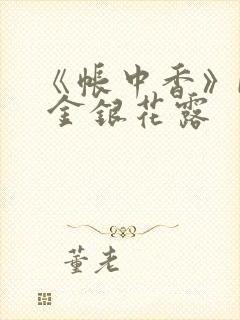 《帐中香》
金银花露
董老